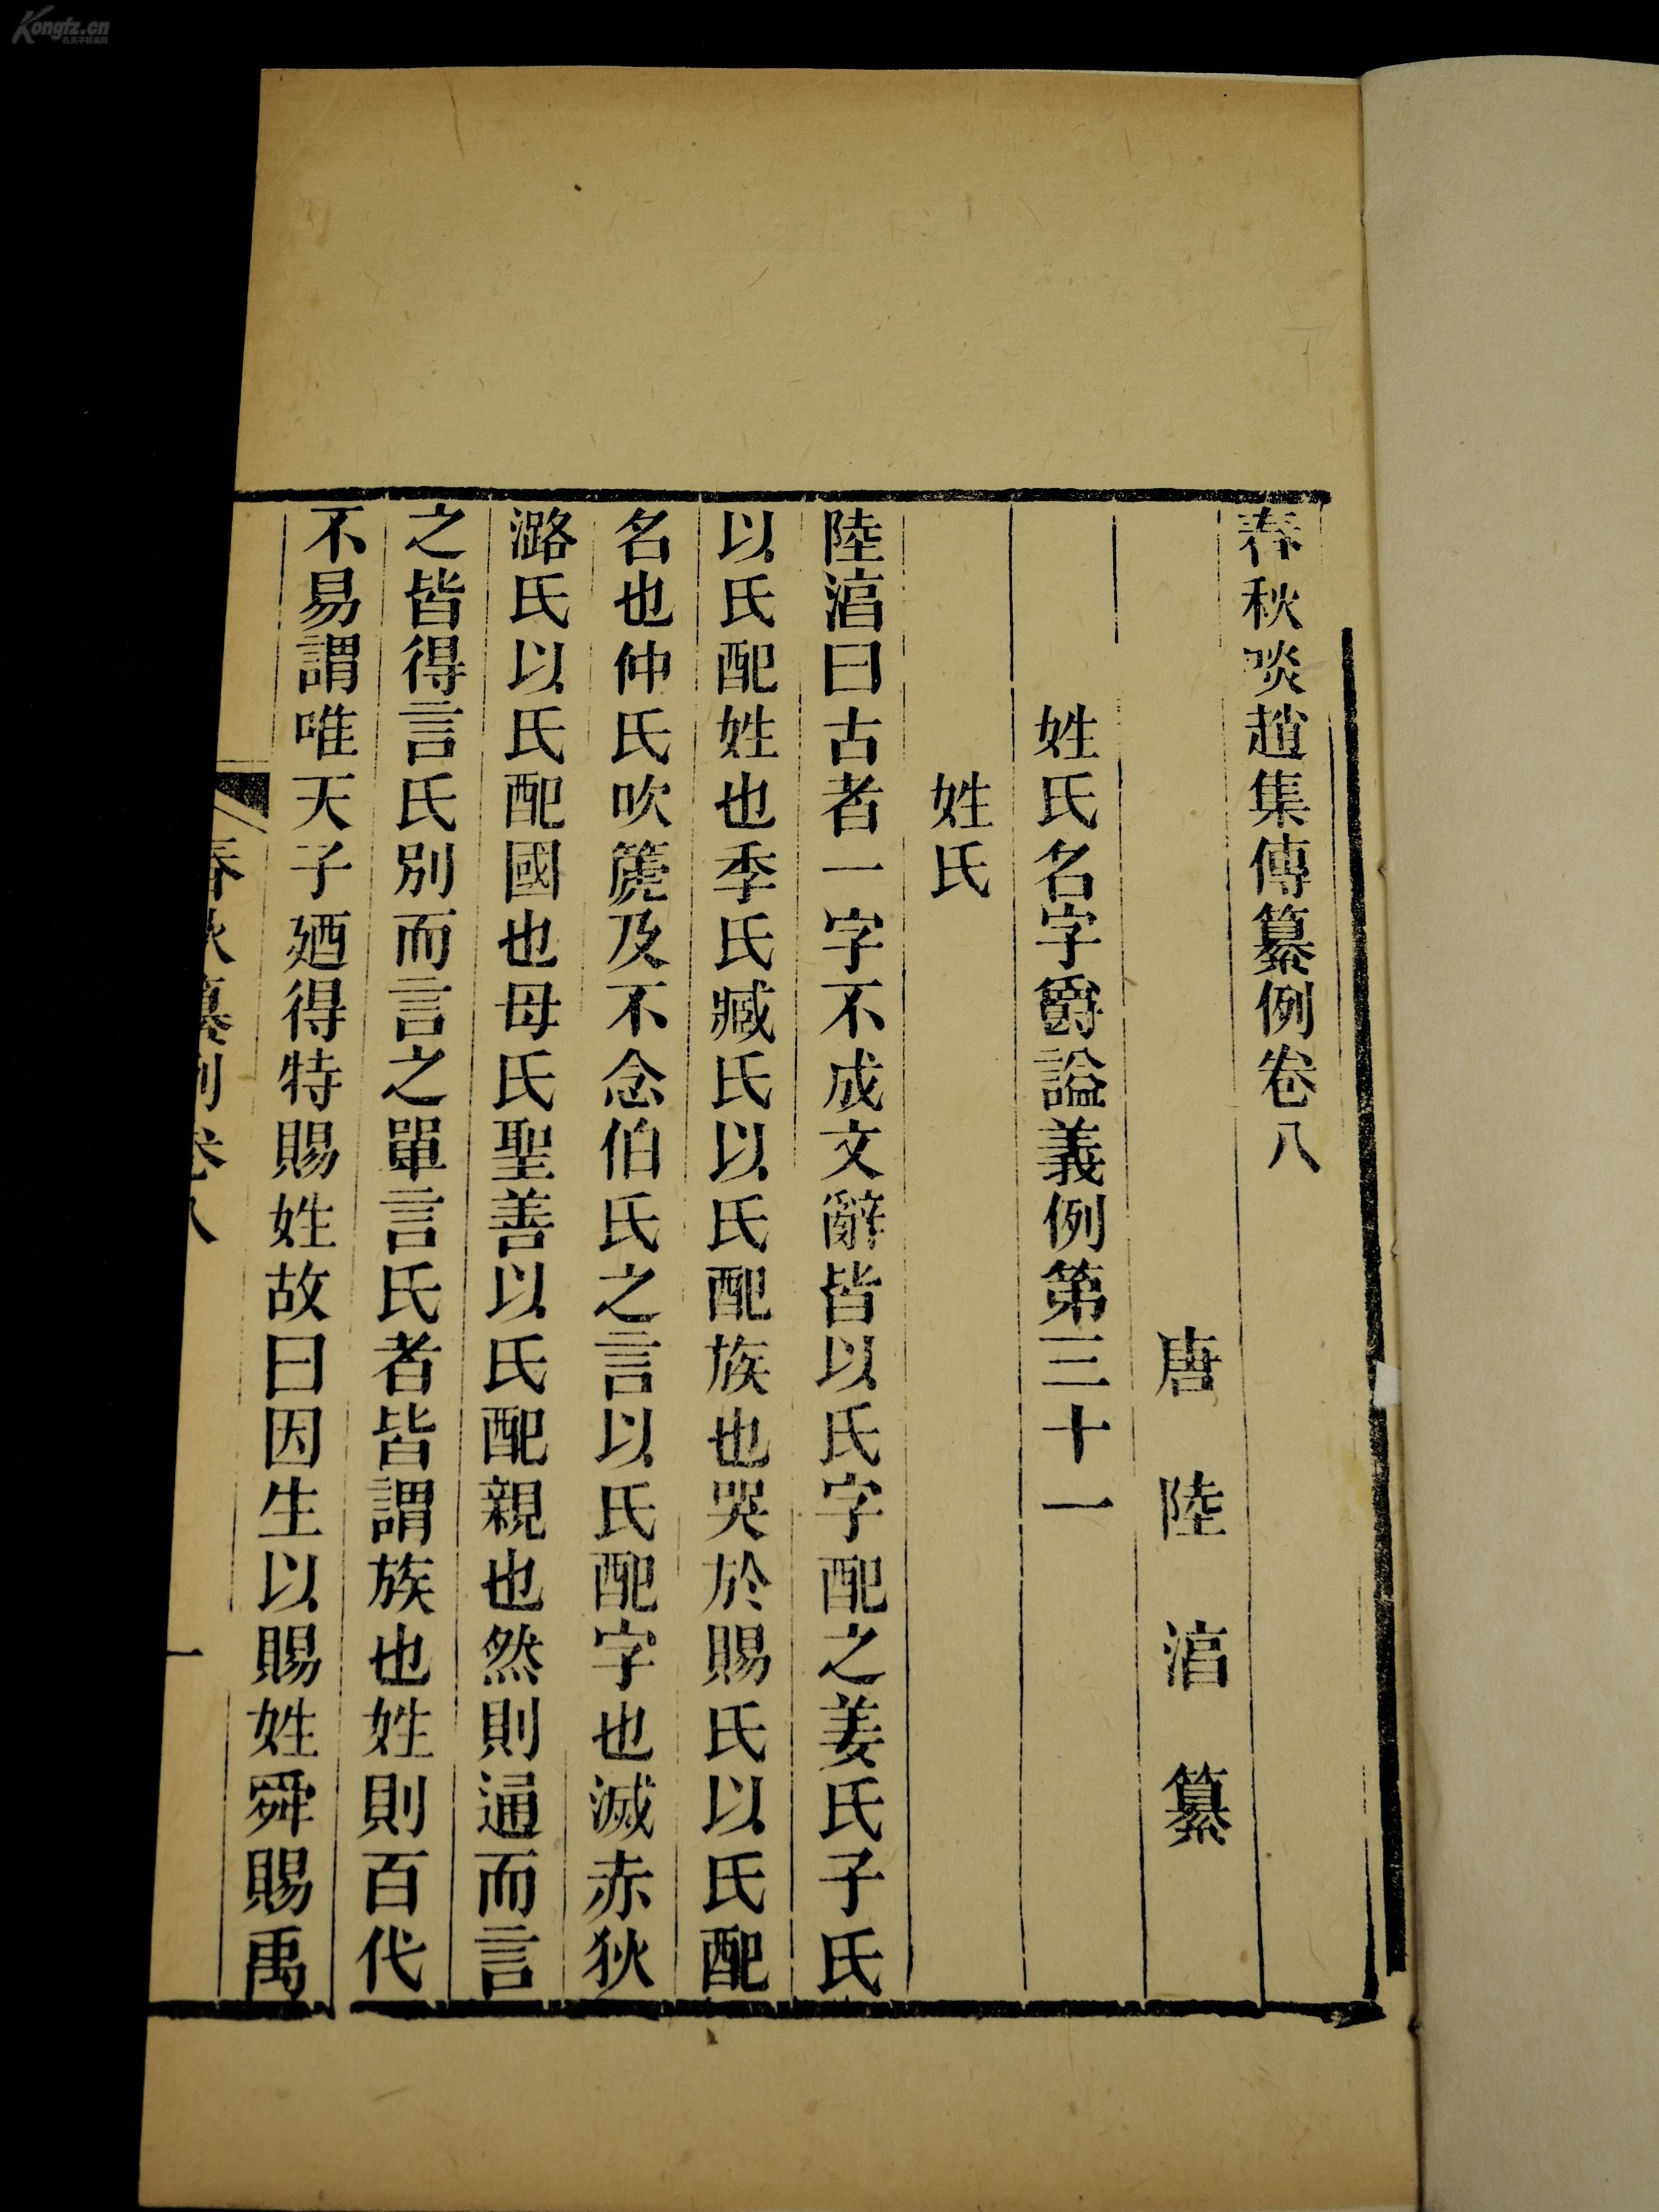 春秋啖趙集傳纂例卷八
唐陸淳纂
姓氏名字爵謚義例第三十一
姓氏
陸淳曰古者一字不成文辭皆以氏字配之姜氏子氏
以氏配姓也季氏臧氏以氏配族也哭於賜氏以氏配
名也仲氏吹篪及不念伯氏之言以氏配字也滅赤狄
潞氏以氏配國也母氏聖善以氏配親也然則通而言
之皆得言氏別而言之單言氏者皆謂族也姓則百代
不易謂唯天子廼得特賜姓故曰因生以賜姓舜賜禹
春秋纂例卷八
一
Kongfz.cn